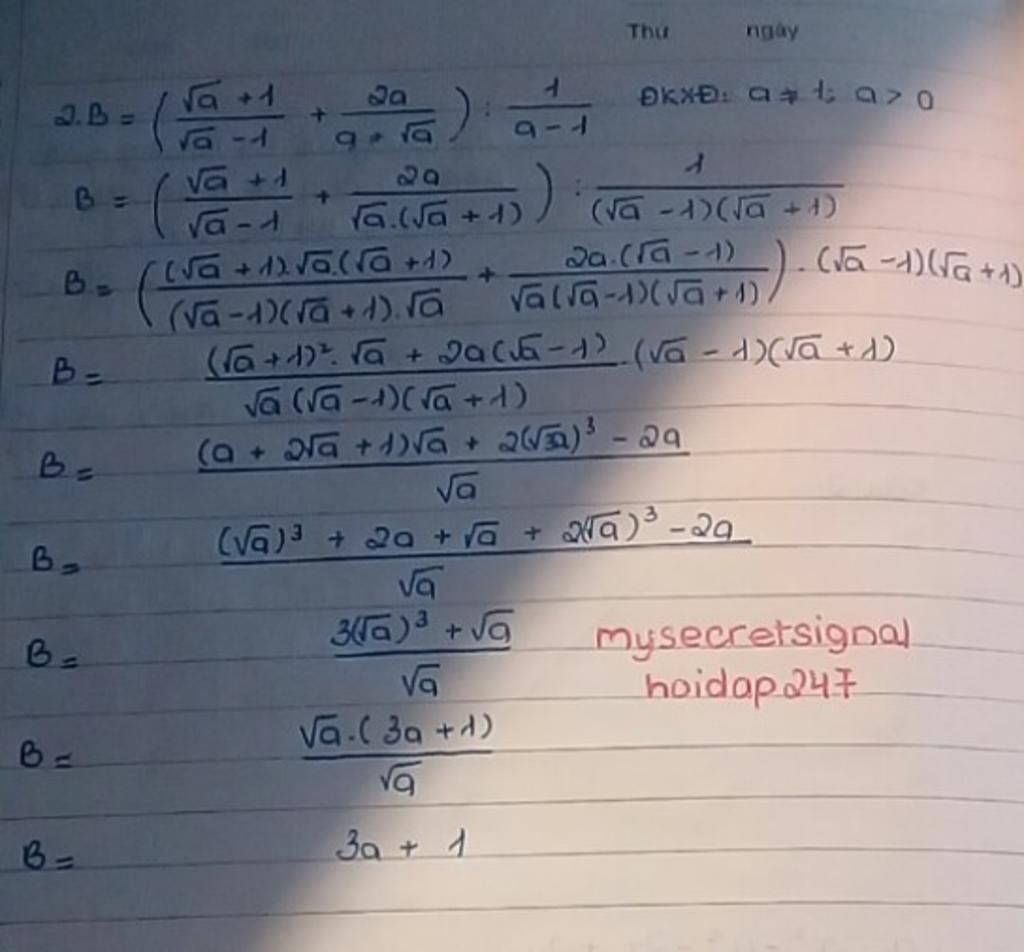 Thứ ngày
2.B = ( (√a + 1)/(√a - 1) + 2a/(a + √a) ) : 1/(a - 1) ĐKXĐ: a ≠ 1; a > 0
B = ( (√a + 1)/(√a - 1) + 2a/(√a.(√a + 1)) ) : 1/((√a - 1)(√a + 1))
B = ( ((√a + 1).√a.(√a + 1))/((√a - 1)(√a + 1).√a) + (2a.(√a - 1))/(√a(√a - 1)(√a + 1)) ) . (√a - 1)(√a + 1)
B = ((√a + 1)².√a + 2a(√a - 1))/(√a(√a - 1)(√a + 1)) . (√a - 1)(√a + 1)
B = ((a + 2√a + 1)√a + 2(√a)³ - 2a)/√a
B = ((√a)³ + 2a + √a + 2(√a)³ - 2a)/√a
B = (3(√a)³ + √a)/√a
mysecretsignal
hoidap247
B = (√a.(3a + 1))/√a
B = 3a + 1